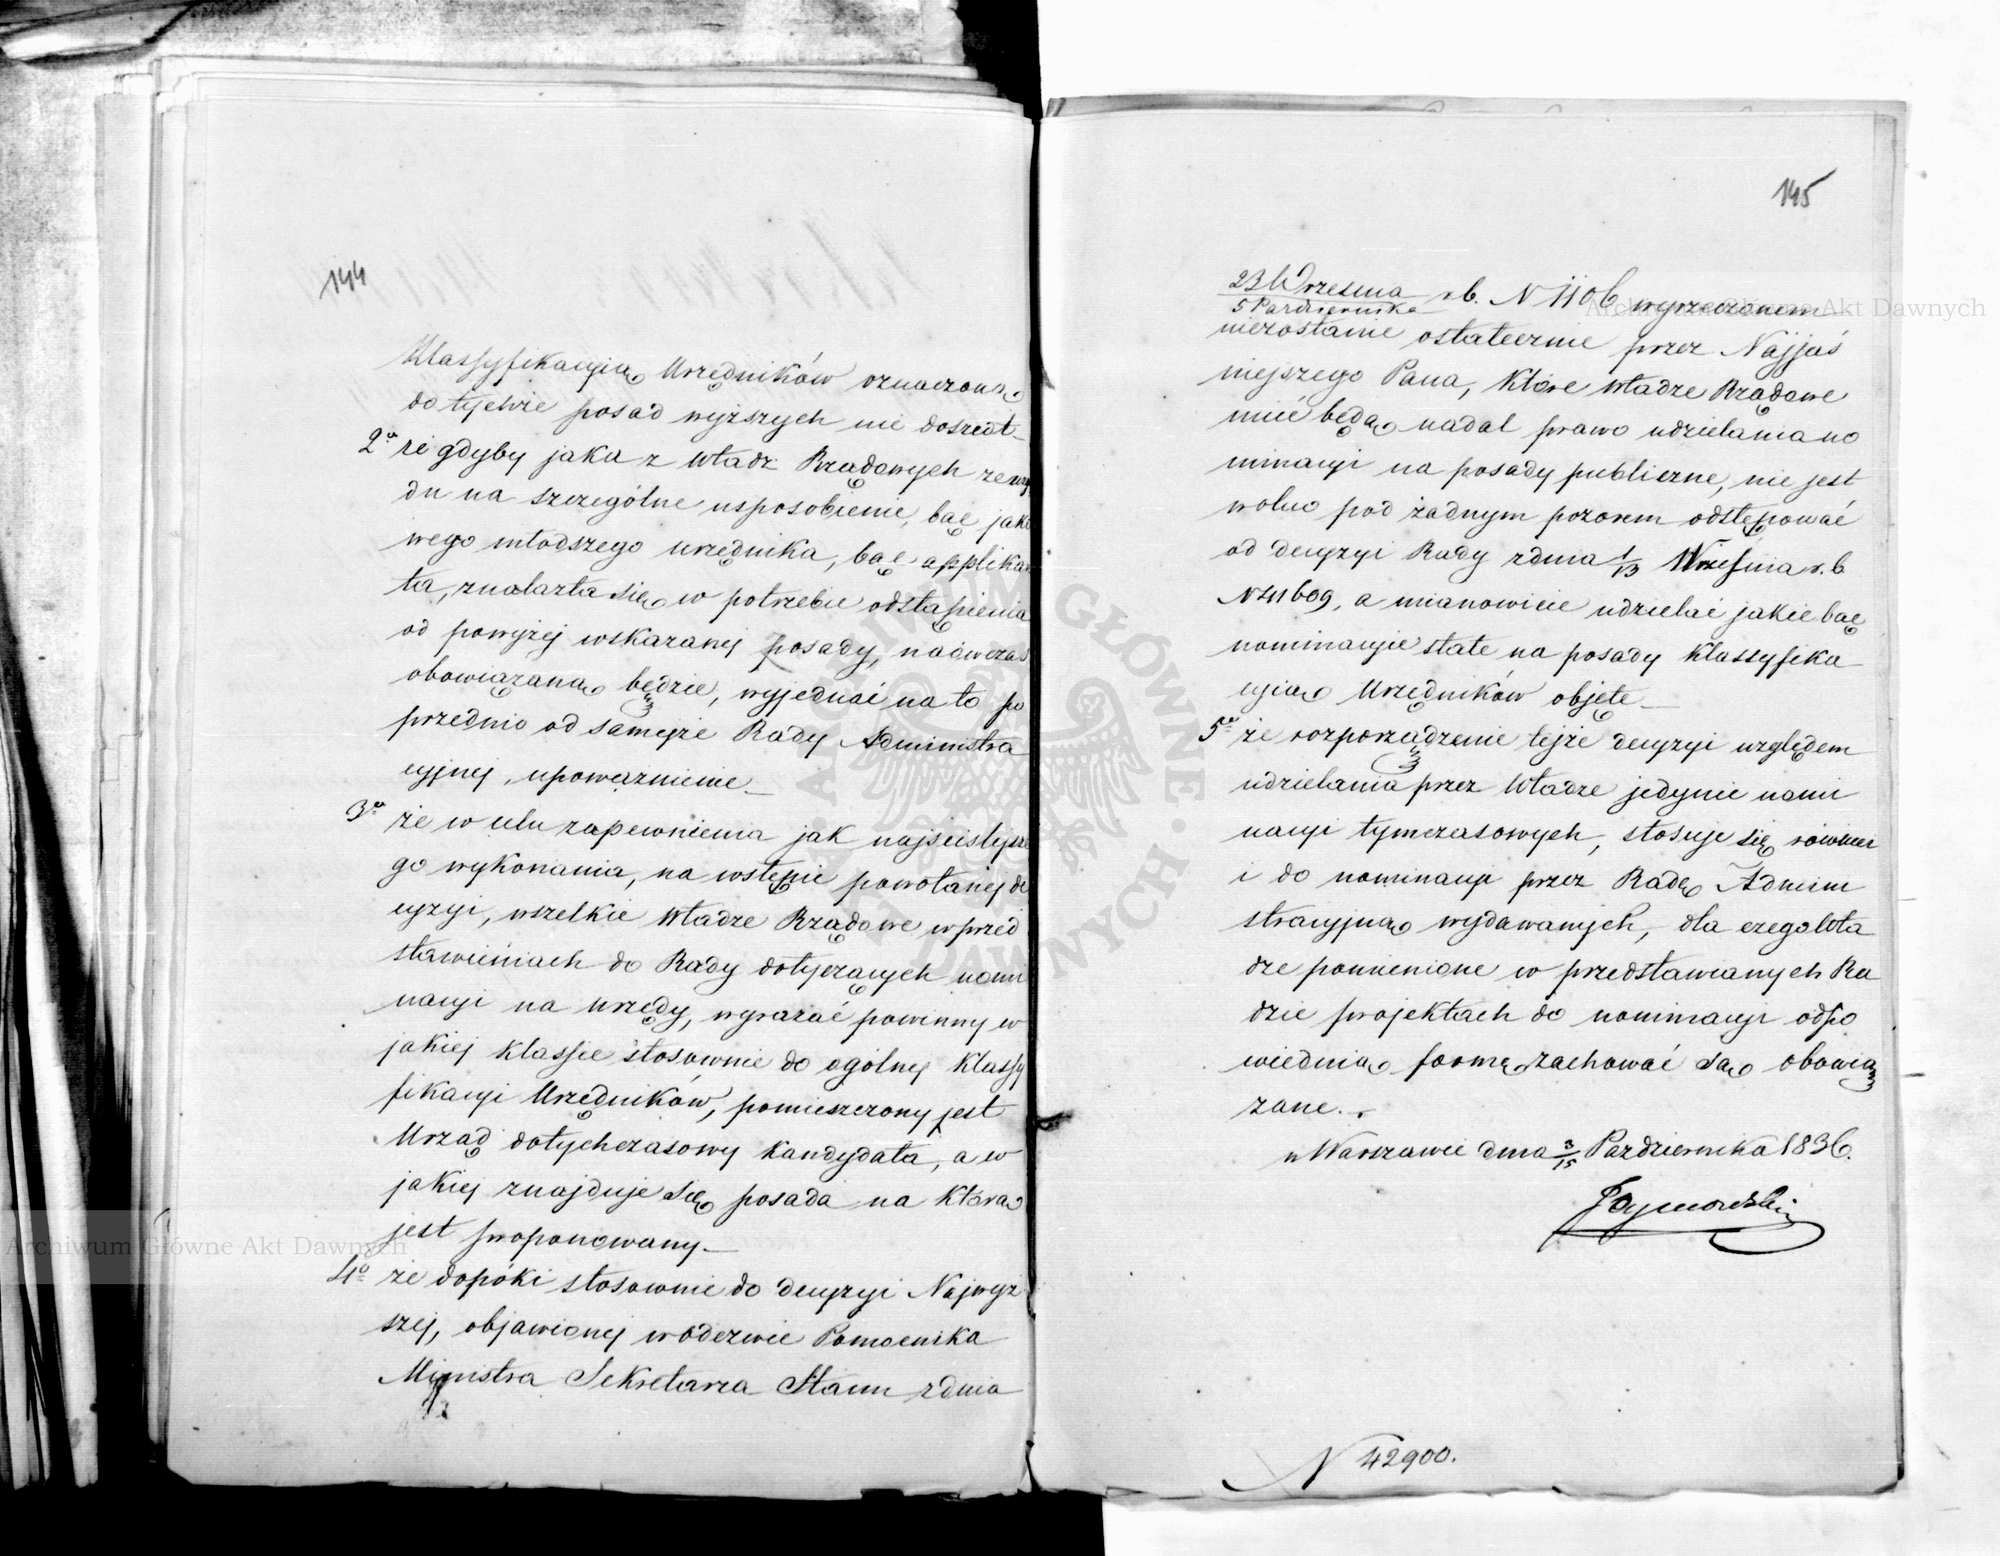 144
Klassyfikacyią Urzędników oznaczone
do tychże posad wyższych nie doszedł_
2º że gdyby jaka z Władz Rządowych ze wzglę
du na szczególne usposobienie, bąć jako
wego młodszego urzędnika, bąć applikan
ta, znalazła się w potrzebie odstąpienia
od powyżej wskazanej posady, nadwczas
obowiązaną będzie, wyjednać na to po
przednio od samejże Rady Administra
cyjnej, upoważnienie_
3º że w celu zapewnienia jak najściślejsze
go wykonania, na wstępie powołanej de
cyzyi, wszelkie Władze Rządowe w przed
stawieniach do Rady dotyczących nomi
nacyi na urzędy, wyrażać powinny w
jakiej klassie stosownie do ogólnej klassy
fikacyi Urzędników, pomieszczony jest
Urząd dotychczasowy kandydata, a w
jakiej znajduje się posada na którą
jest proponowany_
4º że dopóki stosownie do decyzyi Najwyż
szej, objawionej w odezwie Pomocnika
Ministra Sekretarza Stanu z dnia
145
23 Września
5 Październike r.b. N 1106 wyrzeczonem
niezostanie ostatecznie przez Najjaś
niejszego Pana, które Władze Rządowe
mieć będą nadal prawo udzielania no
minacyi na posady publiczne, nie jest
wolno pod żadnym pozorem odstępować
od decyzyi Rady z dnia 1/13 Września r.b
N 41609, a mianowicie udzielać jakie bąć
nominacyie stałe na posady Klassyfika
cyią Urzędników objęte_
5º że rozporządzenie tejże decyzyi względem
udzielania przez Władze jedynie nomi
nacyi tymczasowych, stosuje się również
i do nominacyi przez Radę Admini
stracyjną wydawanych, dla czego Wła
dze pomienione w przedstawianych Ra
dzie projektach do nominacyi odpo
wiednią formę zachować są obowią
zane._
w Warszawie dnia 3/15 Października 1836.
Tymowski
N 42900.
Archiwum Główne Akt Dawnych
Archiwum Główne Akt Dawnych
ARCHIWUM GŁÓWNE AKT DAWNYCH